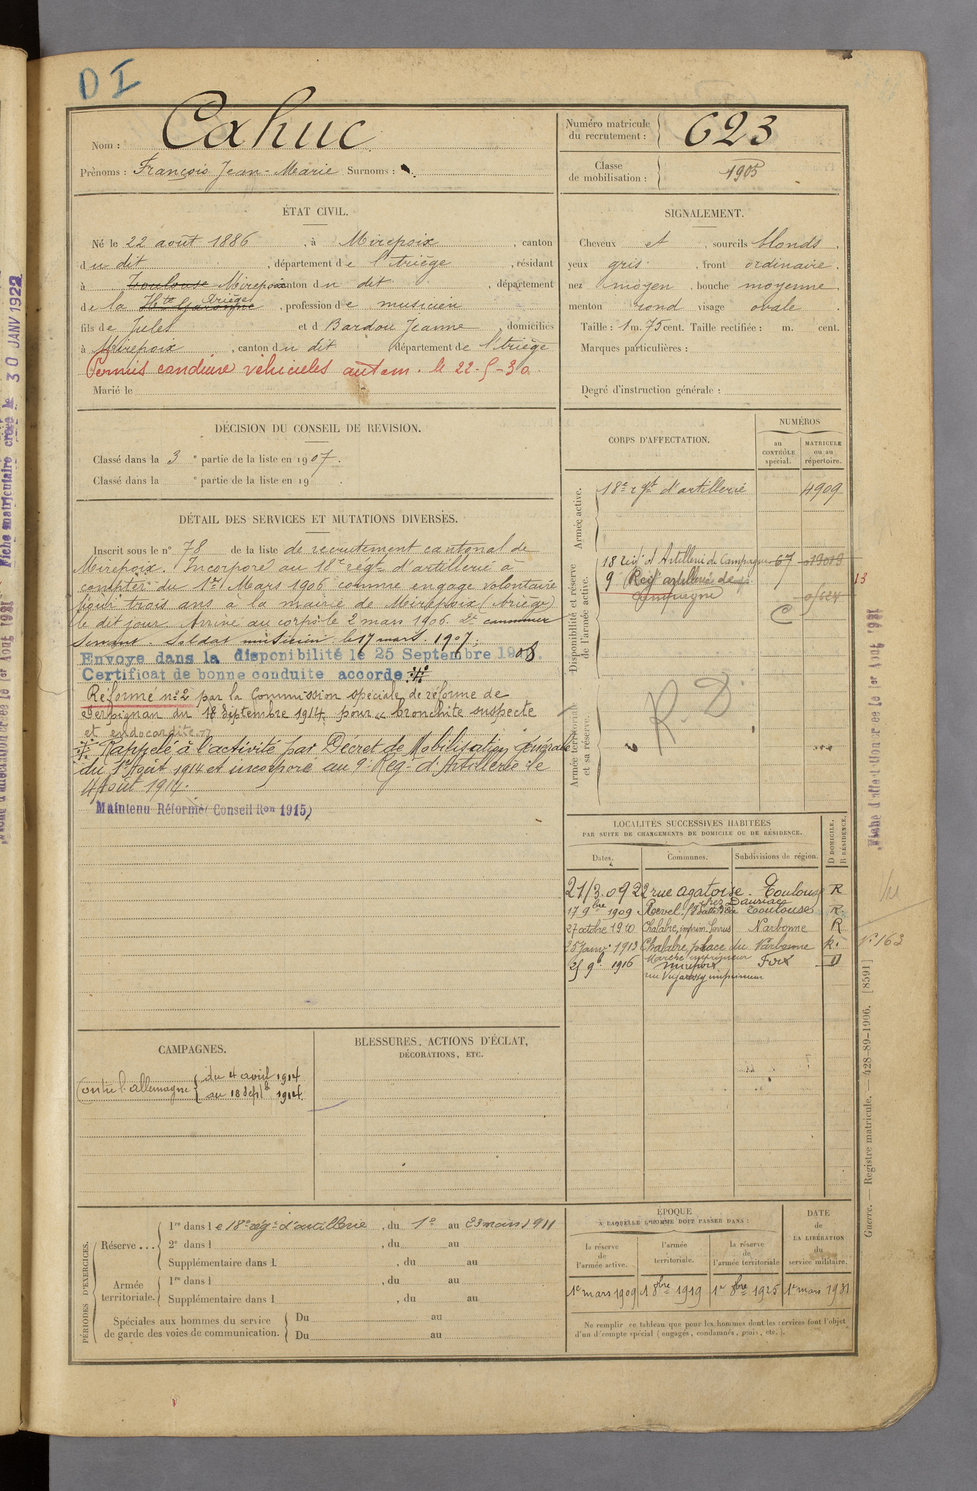 D I
Nom : Cahuc
Prénoms : François Jean-Marie Surnoms :
Numéro matricule du recrutement : 623
Classe de mobilisation : 1905
ÉTAT CIVIL.
Né le 22 août 1886, à Mirepoix, canton
du dit, département de l'Ariège, résidant
à Toulouse Mirepoix canton du dit, département
de la Hte Garonne Ariège, profession de musicien
fils de Jules et d Bardou Jeanne domiciliés
à Mirepoix, canton du dit département de l'Ariège
Permis conduire véhicules autom. le 22-5-30
Marié le
SIGNALEMENT.
Cheveux et, sourcils blonds.
yeux gris, front ordinaire.
nez moyen, bouche moyenne.
menton rond visage ovale.
Taille : 1 m. 75 cent. Taille rectifiée : m. cent.
Marques particulières :
Degré d'instruction générale :
DÉCISION DU CONSEIL DE REVISION.
Classé dans la 3e partie de la liste en 1907.
Classé dans la e partie de la liste en 19
DÉTAIL DES SERVICES ET MUTATIONS DIVERSES.
Inscrit sous le n° 78 de la liste de recrutement cantonal de
Mirepoix. Incorporé au 18e régt d'artillerie à
compter du 1er Mars 1906 comme engagé volontaire
pour trois ans à la mairie de Mirepoix (Ariège)
le dit jour. Arrivé au corps le 2 mars 1906. 2e canonnier
servant. Soldat musicien le 17 mars 1907.
Envoyé dans la disponibilité le 25 Septembre 1908.
Certificat de bonne conduite accordé.
Réformé n° 2 par la Commission spéciale de réforme de
Perpignan du 18 Septembre 1914 pour "bronchite suspecte
et endocardite."
Rappelé à l'activité par Décret de Mobilisation Générale
du 1er Août 1914 et incorporé au 9e Rég. d'Artillerie le
4 Août 1914.
Maintenu Réformé (Conseil Ron 1915)
CORPS D'AFFECTATION.
NUMÉROS
au CONTRÔLE spécial.
MATRICULE ou au répertoire.
Armée active.
18e rgt d'artillerie 4909
Disponibilité et réserve de l'armée active.
18 Régt d'Artillerie de Campagne 67
9e Régt artillerie de
campagne
C
13
Armée territoriale et sa réserve.
R. D
LOCALITÉS SUCCESSIVES HABITÉES
PAR SUITE DE CHANGEMENTS DE DOMICILE OU DE RÉSIDENCE.
Dates. Communes. Subdivisions de région. D DOMICILE. R RÉSIDENCE.
21/3.09 22 rue agatoise - Toulouse R
17 9bre 1909 Revel Toulouse R
27 octobre 1910 Chalabre, imprim. Narbonne R
25 janv. 1913 Chalabre, place du Narbonne R.
Marché imprimeur
25 9b 1916 Mirepoix Foix D
N° 163
CAMPAGNES.
Contre l'allemagne du 4 avril 1914
au 18 septb 1914.
BLESSURES, ACTIONS D'ÉCLAT,
DÉCORATIONS, ETC.
PÉRIODES D'EXERCICES.
Réserve ...
1re dans le 18e rég. d'artillerie, du 1er au 23 mars 1911
2e dans l , du au
Supplémentaire dans l , du au
Armée territoriale.
1re dans l , du au
Supplémentaire dans l , du au
Spéciales aux hommes du service de garde des voies de communication.
Du au
Du au
ÉPOQUE
À LAQUELLE L'HOMME DOIT PASSER DANS :
la réserve de l'armée active.
l'armée territoriale.
la réserve de l'armée territoriale
DATE de LA LIBÉRATION du service militaire.
1er mars 1909
1 8bre 1919
1er 8bre 1925
1er mars 1931
Ne remplir ce tableau que pour les hommes dont les services font l'objet
d'un décompte spécial (engagés, condamnés, graciés, etc.).
Guerre. — Registre matricule. — 428-89-1906. [8591]
Fiche matriculaire créée le 30 JANV 1922
Fiche d'affectation créée le 1er Aout 1931